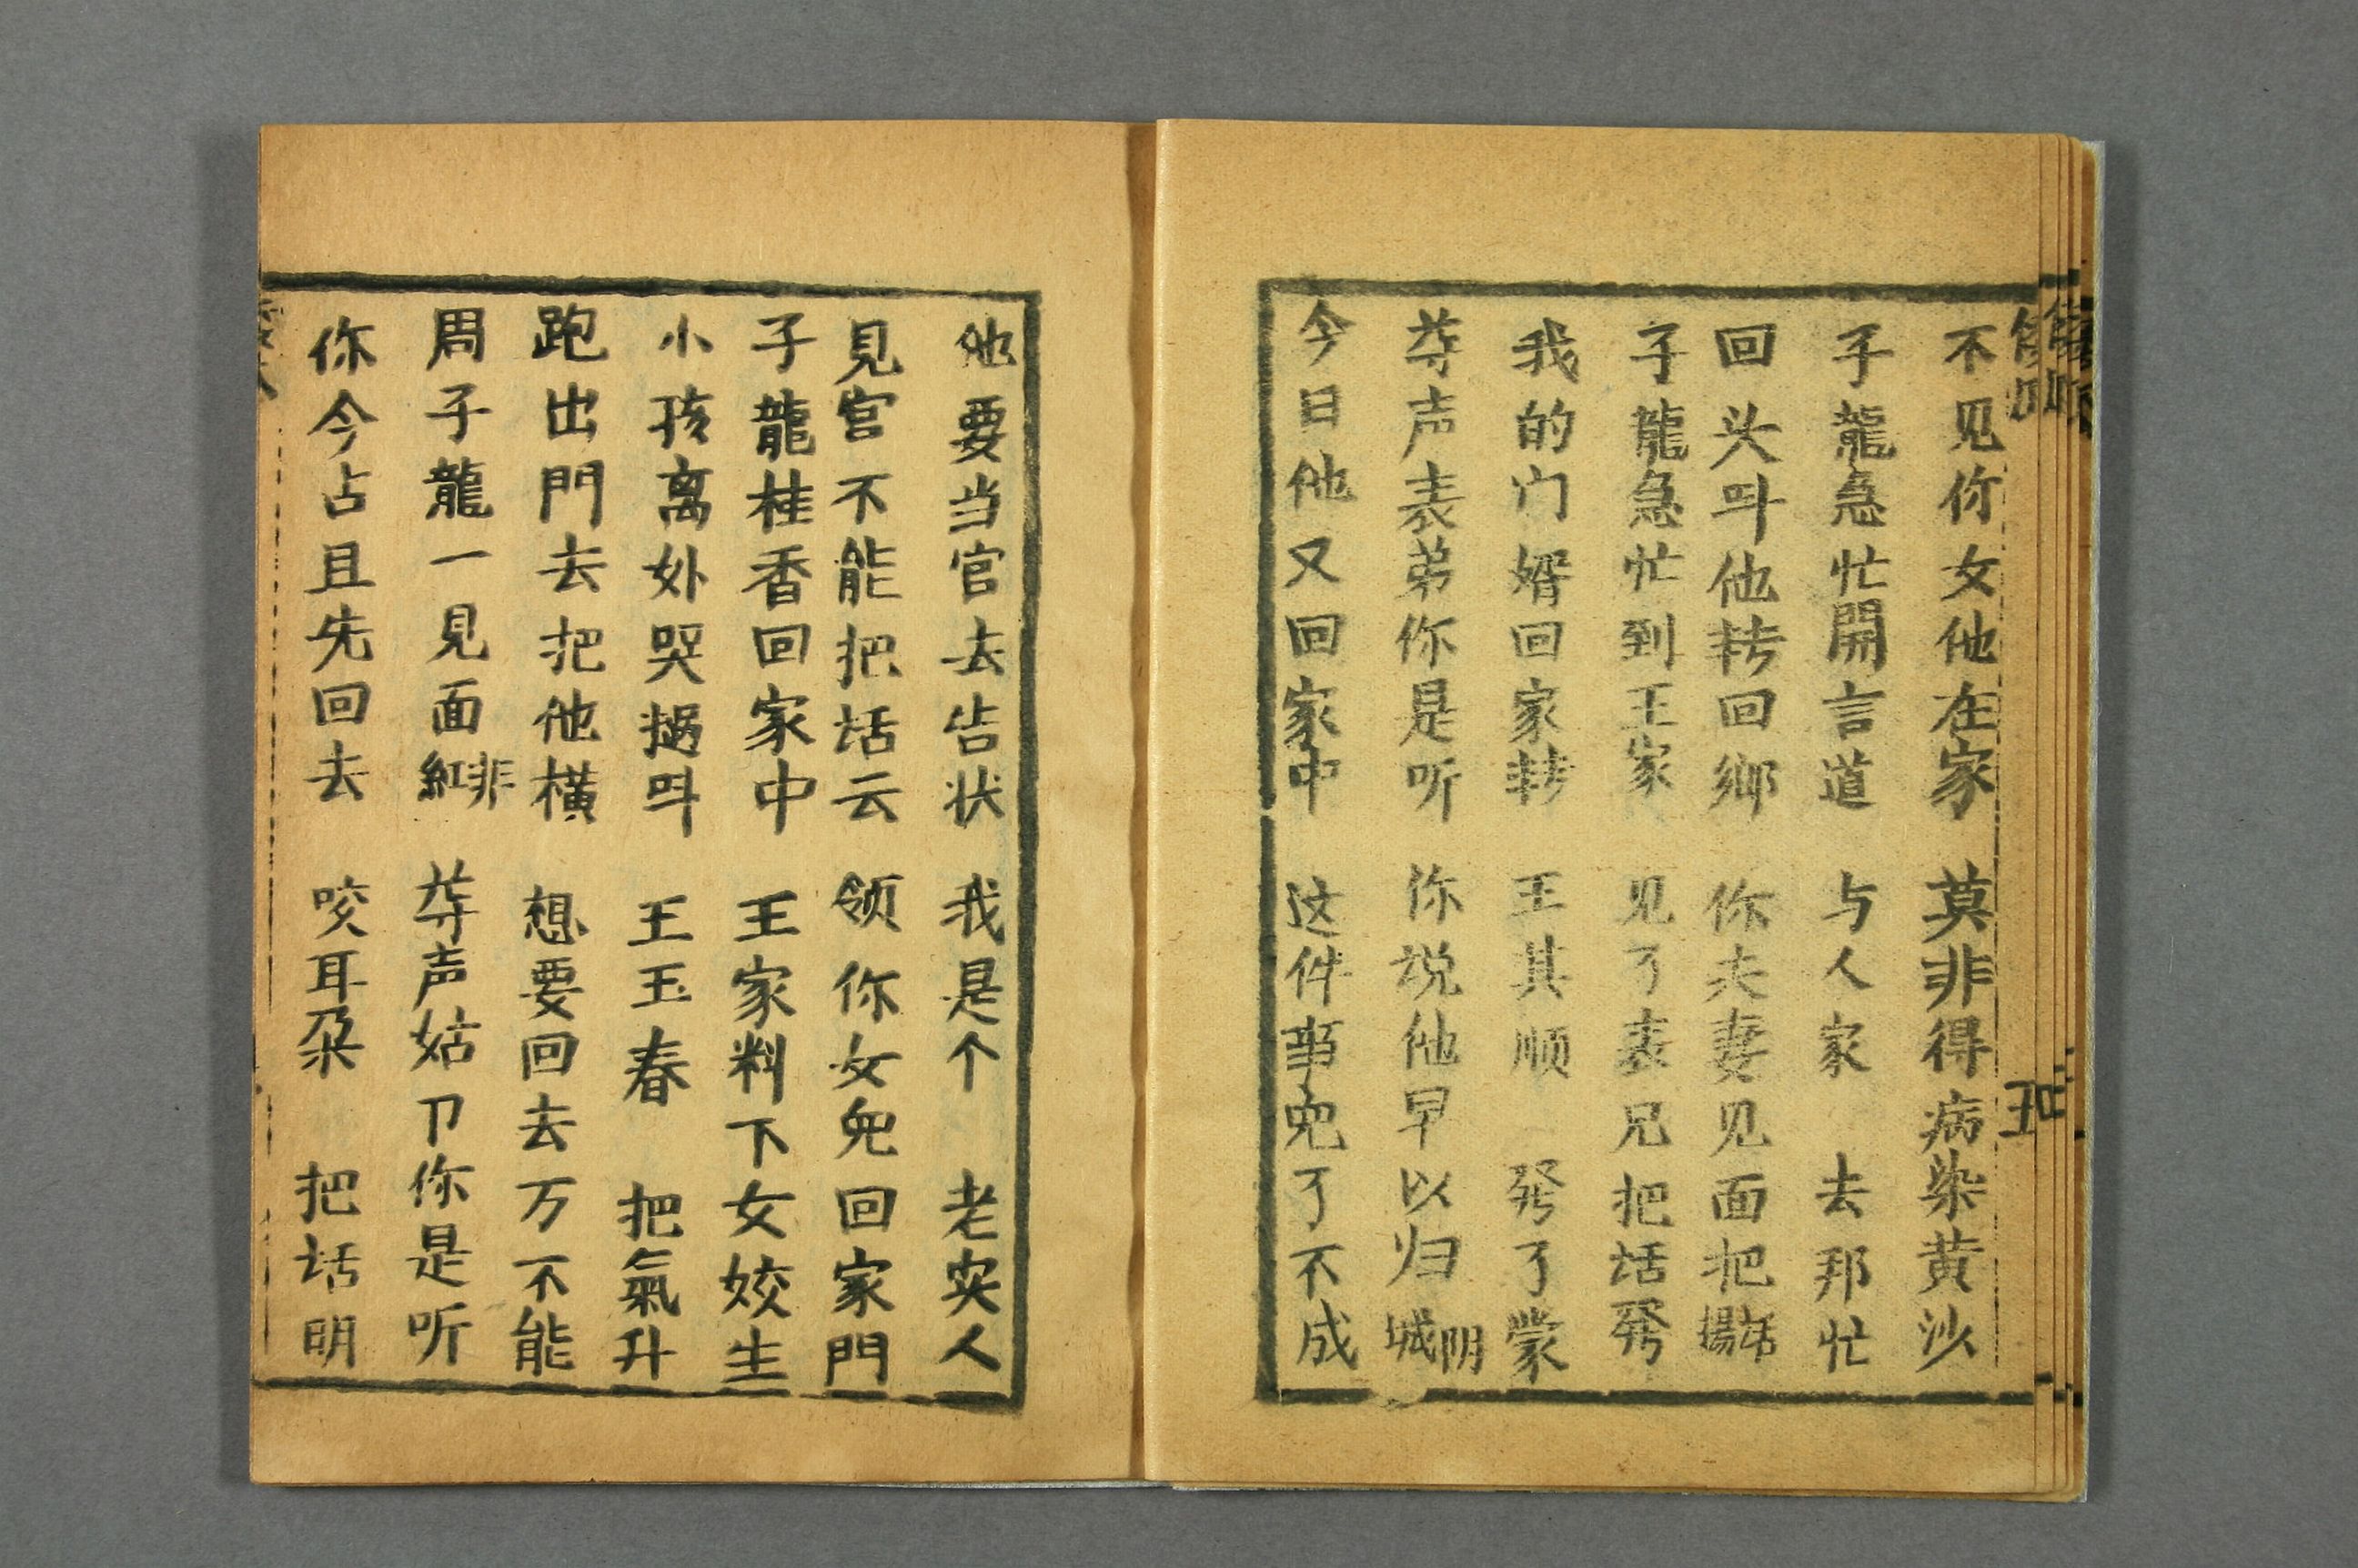 不见你女他在家 莫非得病染黄沙
子龍急忙開言道 与人家 去那忙
回头呌他转回鄉 你夫妻见面把話揚
子龍急忙到王家 见了表兄把话發
我的门婿回家转 王其顺 發了蒙
尊声表弟你是听 你说他早以归阴城
今日他又回家中 这件事兒了不成
他要当官去告状 我是个 老实人
見官不能把话云 领你女兒回家門
子龍桂香回家中 王家料下女姣生
小孩离外哭 呌 王玉春 把氣升
跑出門去把他横 想要回去万不能
周子龍一見面非紅 尊声姑 你是听
你今占且先回去 咬耳朵 把话明